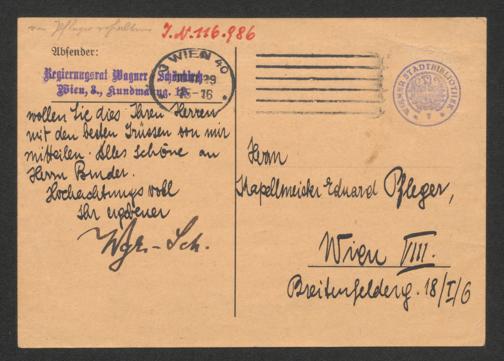 von Pfleger erhalten
I.N. 116.986
Absender:
Regierungsrat Wagner Schönkirch
Wien, 3., Kundmanng.
WIEN 40
15-16
WIENER STADTBIBLIOTHEK
wollen Sie dies Ihren Herren
mit den besten Grüssen von mir
mitteilen. Alles Schöne an
Herrn Binder.
Hochachtungsvoll
Ihr ergebener
Wgr-Sch.
Herrn
Kapellmeister Eduard Pfleger,
Wien VIII.
Breitenfelderg. 18/I/6